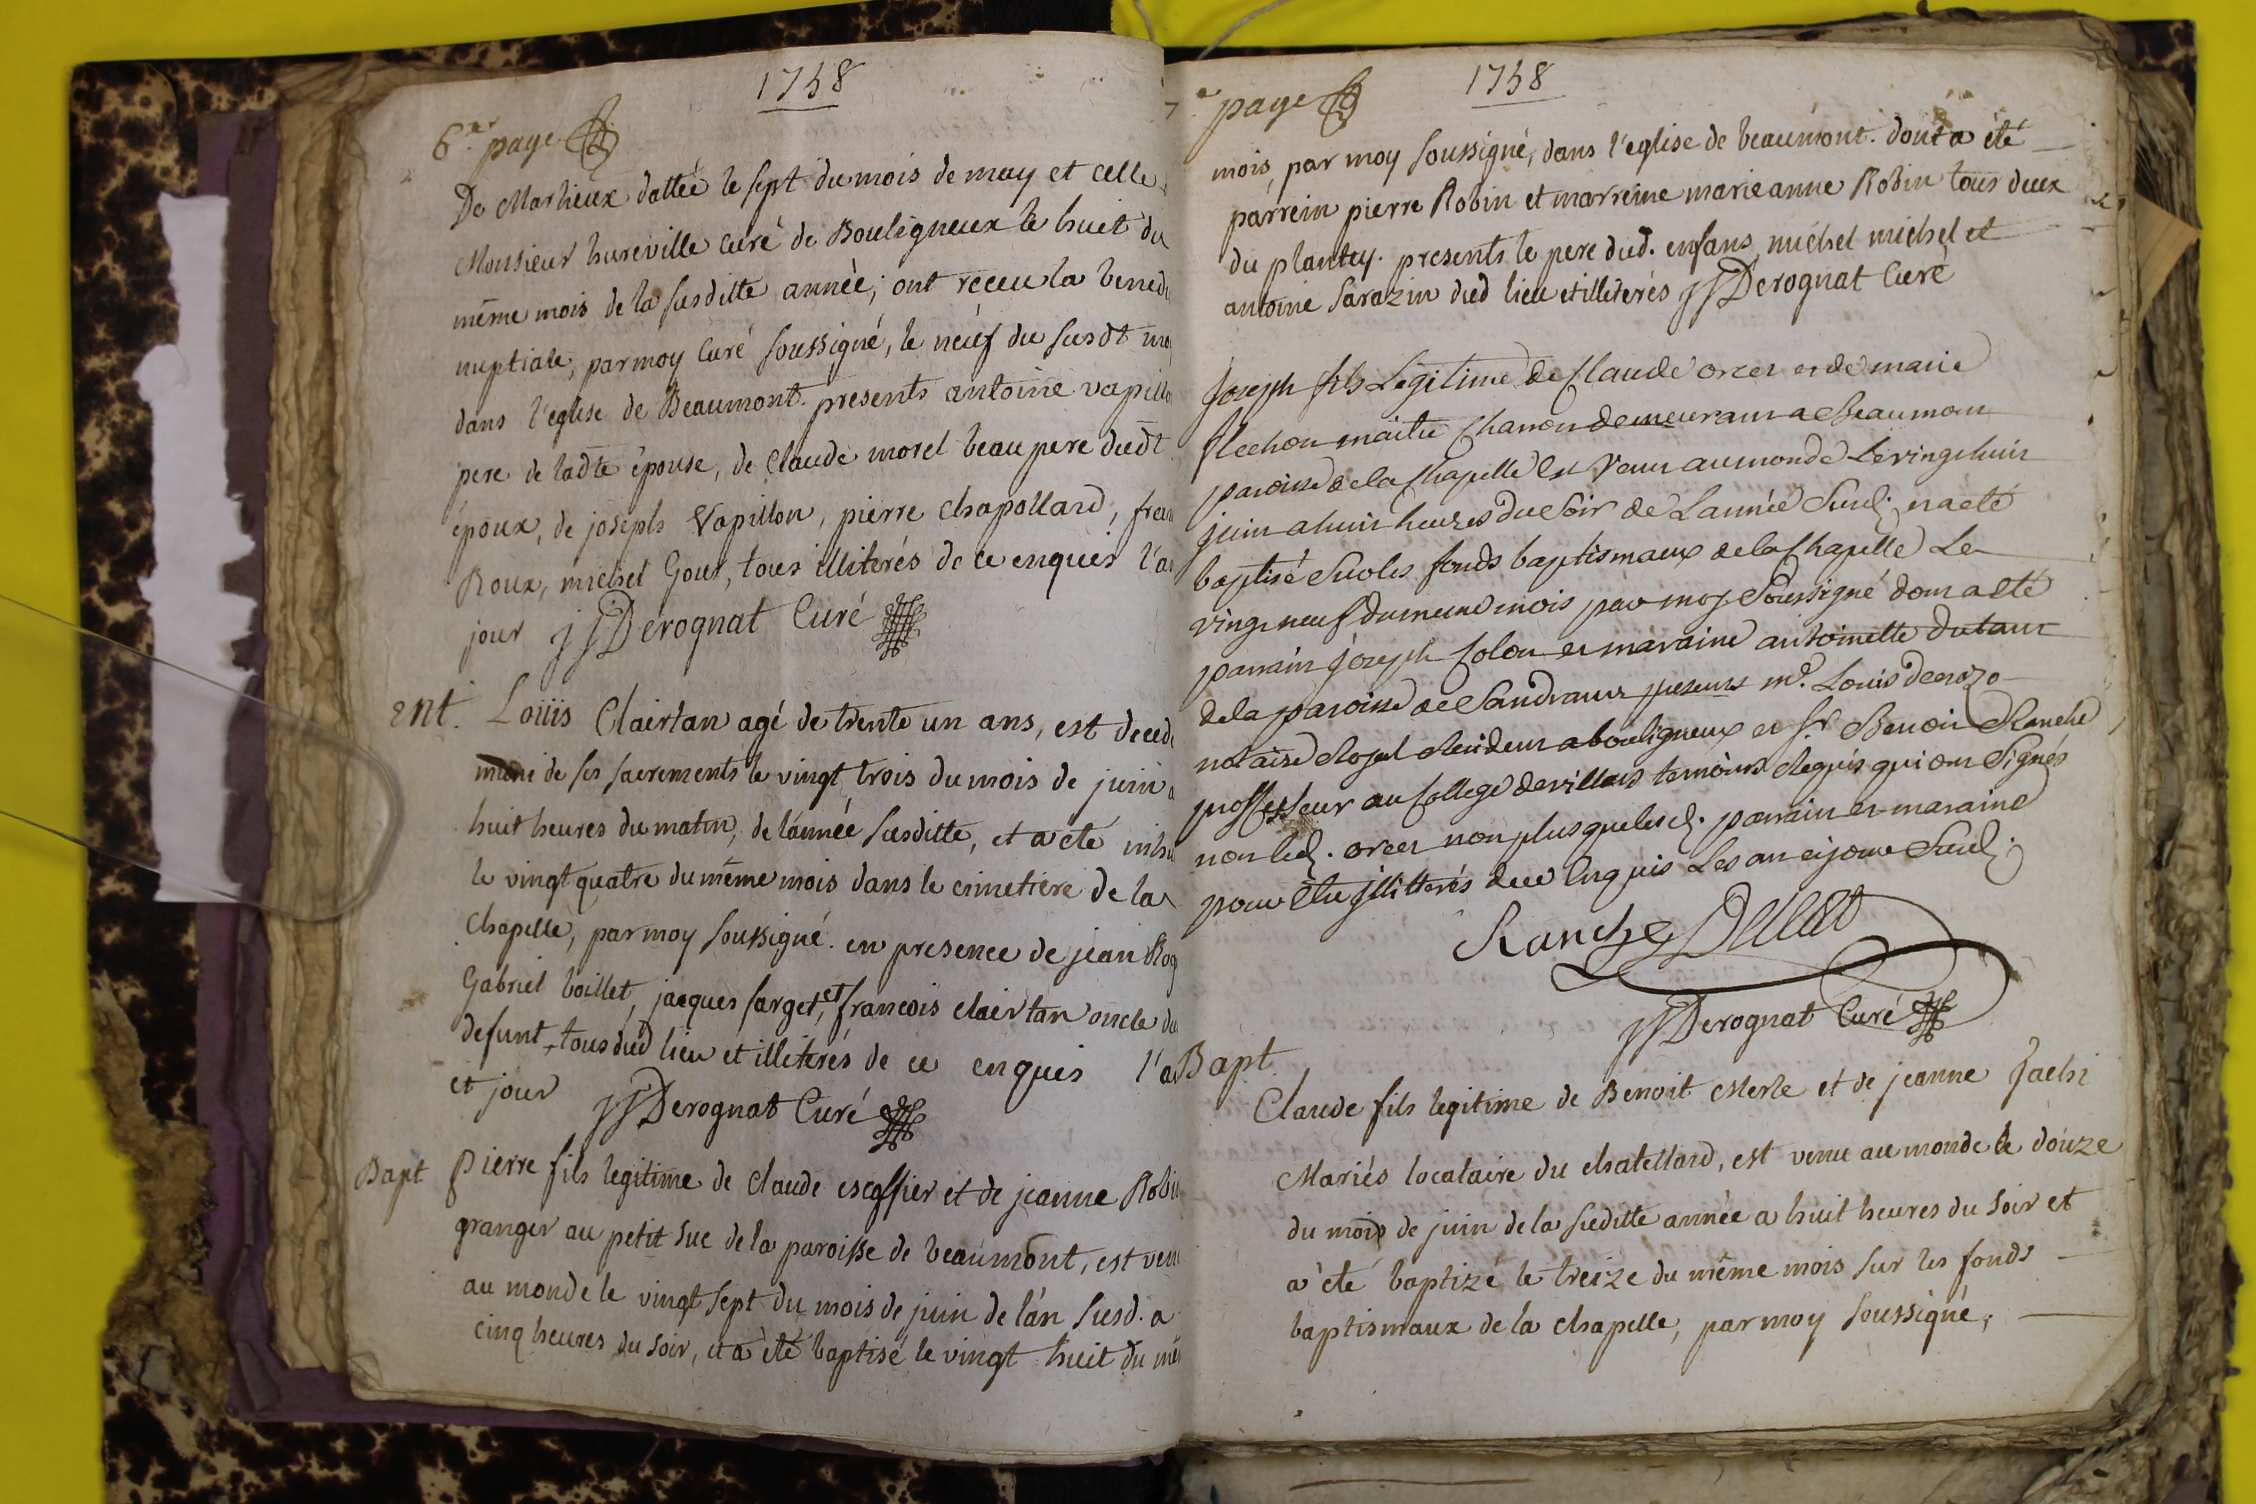 1758
6.e page
De Marlieux dattée le sept du mois de may et celle
Monsieur hureville curé de Bouligneux le huit du
même mois de la susditte année; ont receu la bened
nuptiale, par moy Curé soussigné, le neuf du susdt
dans l'eglise de Beaumont. presents antoine vapillon
pere de ladte épouse, de Claude morel beau pere dudt
époux, de joseph Vapillon, pierre Chapollard,
Roux, michel Gour, tous illiterés de ce enquis l'an
jour JJ Derognat Curé
ent. Loüis Clairtan agé de trente un ans, est decedé
muni de ses sacrements le vingt trois du mois de juin a
huit heures du matin, de l'année susditte, et a eté inhu
le vingt quatre du même mois dans le cimetiere de la
Chapelle, par moy soussigné. en presence de jean
Gabriel boillet, jacques farget, et françois clairtan oncle du
defunt, tous dud lieu et illiterés de ce enquis l'a
et jour JJ Derognat Curé
Bapt Pierre fils legitime de Claude escoffier et de jeanne Robin
granger au petit suc de la paroisse de beaumont, est venu
au monde le vingt sept du mois de juin de l'an susd. a
cinq heures du soir, et a été baptisé le vingt huit du mê
1758
7.e page
mois, par moy soussigné, dans l'eglise de beaumont. dont a été
parrein pierre Robin et marreine marie anne Robin tous deux
du plantey. presents le pere dud. enfans michel michel et
antoine sarazin dud lieu et illiterés JJ Derognat Curé
Joseph fils Legitime de Claude orcet et de marie
flechon maitre Charron demeurant a Beaumont
paroisse de la Chapelle est venu au monde Le vingt huit
juin a huit heures du Soir de L'année Susd; et a eté
baptisé Sur les fonds baptismaux de la Chapelle Le
vingt neuf du meme mois par moy Soussigné dont a eté
parrain joseph Colon et maraine antoinette dutour
de la paroisse de Sandrans presents me. Louis
notaire Royal Resident a bouligneux et Sr. Benoit Ranche
professeur au College de villars temoins Requis qui ont Signés
non led. orcet non plus que lesd. parrain et maraine
pour être illitterés de ce Enquis Les an et jour Susd.
Ranche
JJ Derognat Curé
Bapt
Claude fils legitime de Benoit Merle et de jeanne
Mariés locataire du chatellard, est venu au monde le douze
du mois de juin de la suditte année a huit heures du soir et
a été baptizé le treize du même mois sur les fonds
baptismaux de la chapelle, par moy soussigné,